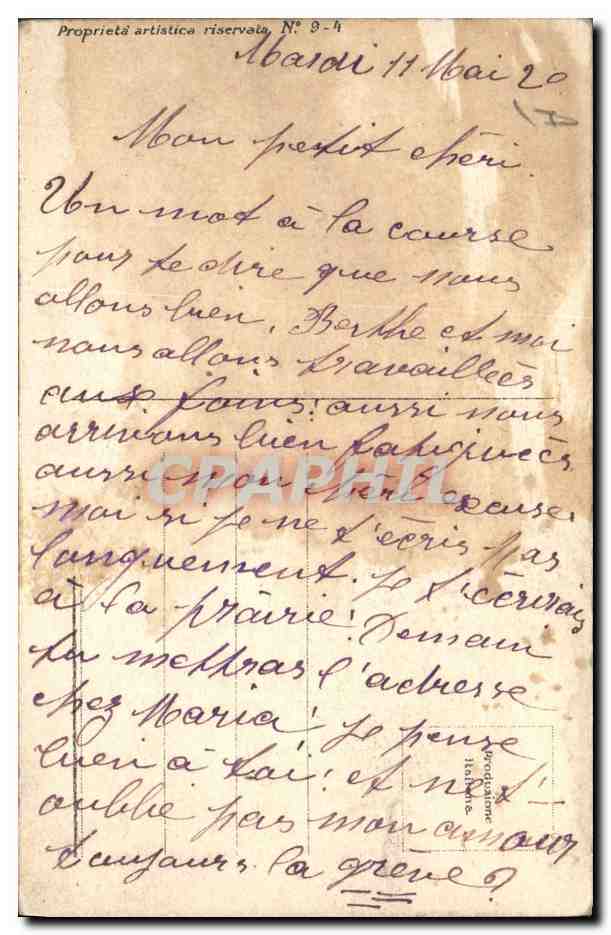 Proprietà artistica riservata N.° 9-4
Mardi 11 Mai 20
Mon petit chéri.
Un mot à la course
pour te dire que nous
allons bien. Berthe et moi
nous allons travaillées
aux foins! aussi nous
arrivons bien fatiguées
aussi mon chéri excuse
moi si je ne t'écris pas
longuement. je t'écrirais
à la prairie! Demain
tu mettras l'adresse
chez Maria! Je pense
bien à toi! et ne t'
oublie pas mon amour
toujours la grève?
Produzione
Italiana
CPAPHIL